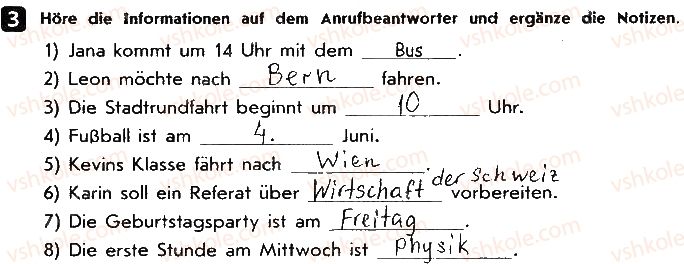 3 Höre die Informationen auf dem Anrufbeantworter und ergänze die Notizen.
1) Jana kommt um 14 Uhr mit dem Bus.
2) Leon möchte nach Bern fahren.
3) Die Stadtrundfahrt beginnt um 10 Uhr.
4) Fußball ist am 4. Juni.
5) Kevins Klasse fährt nach Wien.
der Schweiz
6) Karin soll ein Referat über Wirtschaft vorbereiten.
7) Die Geburtstagsparty ist am Freitag.
8) Die erste Stunde am Mittwoch ist Physik.